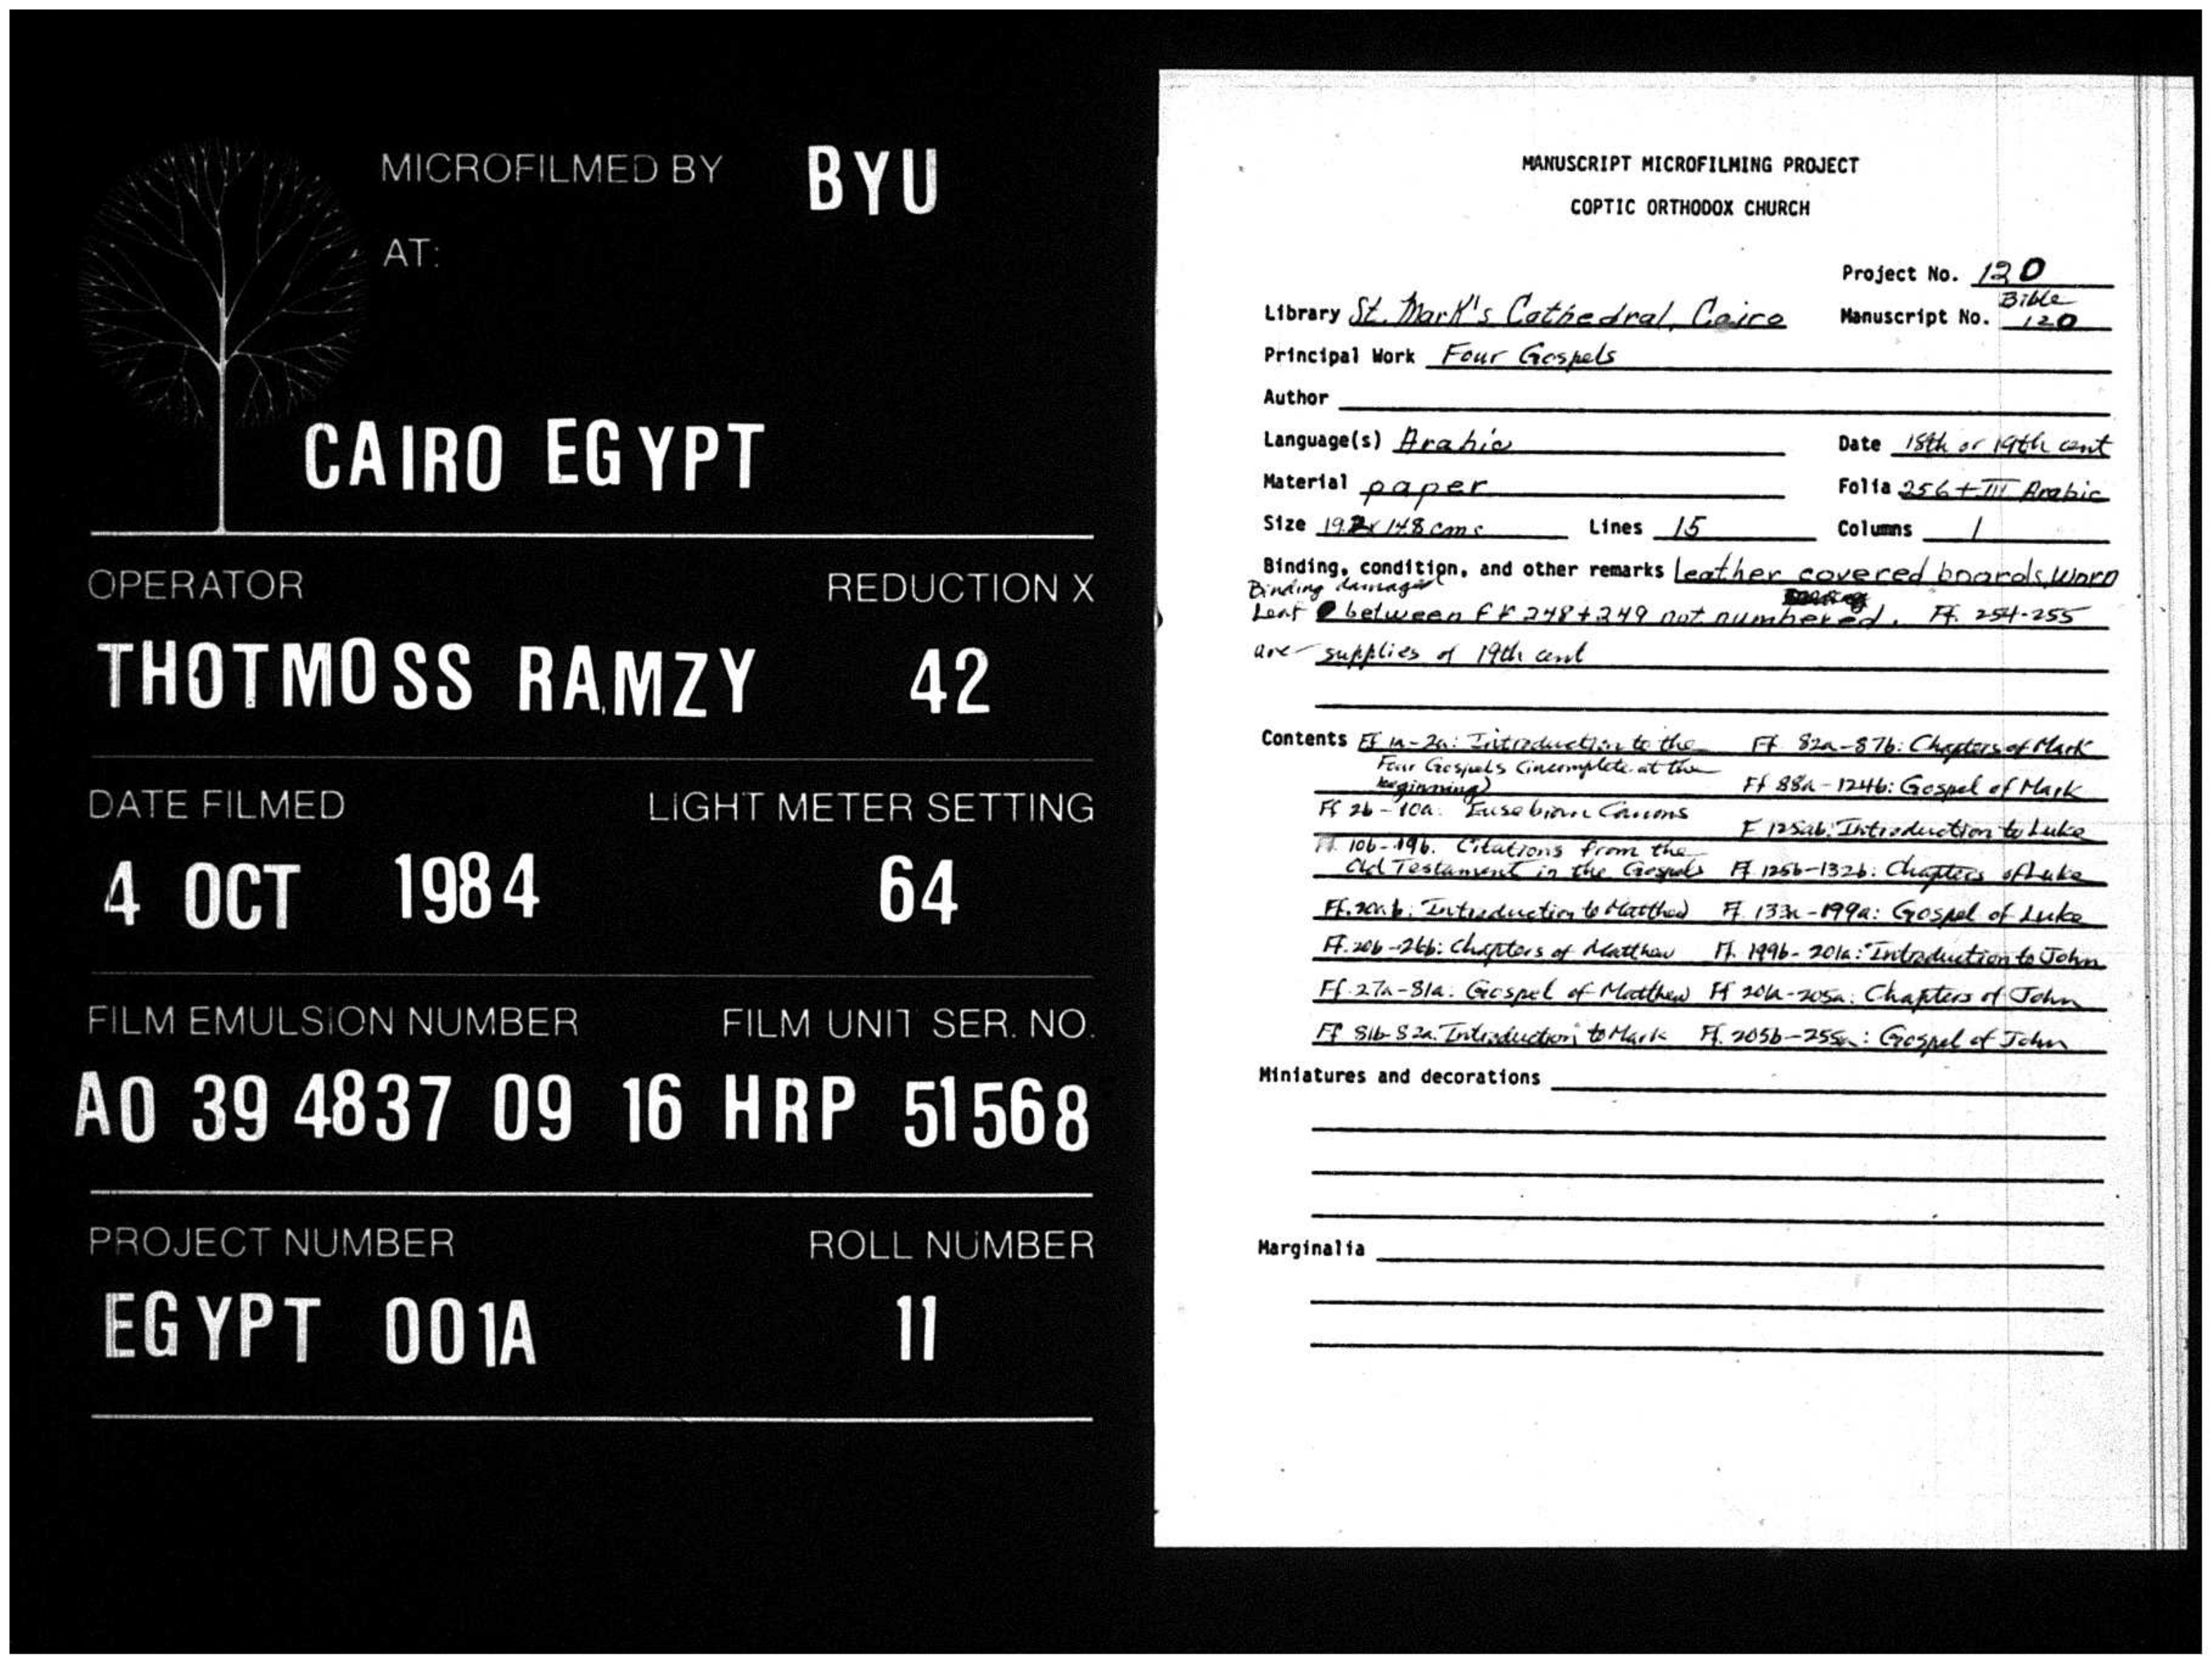 MICROFILMED BY BYU
AT:
CAIRO EGYPT
OPERATOR REDUCTION X
THOTMOSS RAMZY 42
DATE FILMED LIGHT METER SETTING
4 OCT 1984 64
FILM EMULSION NUMBER FILM UNIT SER. NO.
A0 39 4837 09 16 HRP 51568
PROJECT NUMBER ROLL NUMBER
EGYPT 001A 11
MANUSCRIPT MICROFILMING PROJECT
COPTIC ORTHODOX CHURCH
Project No. 120
Library St. Mark's Cathedral, Cairo Manuscript No. Bible 120
Principal Work Four Gospels
Author
Language(s) Arabic Date 18th or 19th cent
Material paper Folia 256 + III Arabic
Size 19.2 x 14.8 cms Lines 15 Columns 1
Binding, condition, and other remarks Leather covered boards, worn
Binding damaged
Leaf between ff 248+249 not numbered. Ff. 254-255
are supplies of 19th cent
Contents Ff 1a-2a: Introduction to the
Four Gospels (incomplete at the
beginning)
Ff 2b-10a: Eusebian Canons
Ff. 10b-19b. Citations from the
Old Testament in the Gospels
Ff. 20a.b: Introduction to Matthew
Ff. 20b-26b: Chapters of Matthew
Ff. 27a-81a: Gospel of Matthew
Ff 81b-82a: Introduction to Mark
Ff 82a-87b: Chapters of Mark
Ff 88a-124b: Gospel of Mark
F 125ab: Introduction to Luke
Ff 125b-132b: Chapters of Luke
Ff. 133a-199a: Gospel of Luke
Ff. 199b-201a: Introduction to John
Ff 201a-205a: Chapters of John
Ff. 205b-255a: Gospel of John
Miniatures and decorations
Marginalia